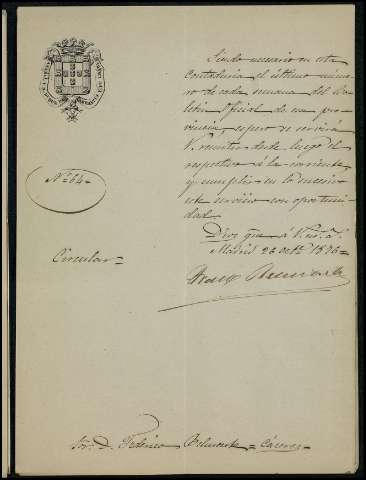 Nº 64 =
Circular =
Siendo necesario en esta
Contaduria el último núme-
ro de cada semana del Bo-
letín Oficial de esa pro-
vincia, espero se servirá
V. remitir desde luego el
respectivo á la corriente
y cumplir en lo sucesivo
este servicio con oportuni-
dad.
Dios gue á V. ms. as.
Madrid 26 octe. 1876 =
Sor. D. Federico Belmonte = Cáceres =